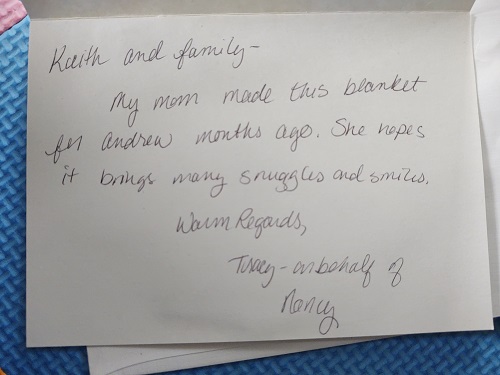 Kaith and family-
My mom made this blanket
for Andrew months ago. She hopes
it brings many snuggles and smiles.
Warm Regards,
Tracy-on behalf of
Nancy